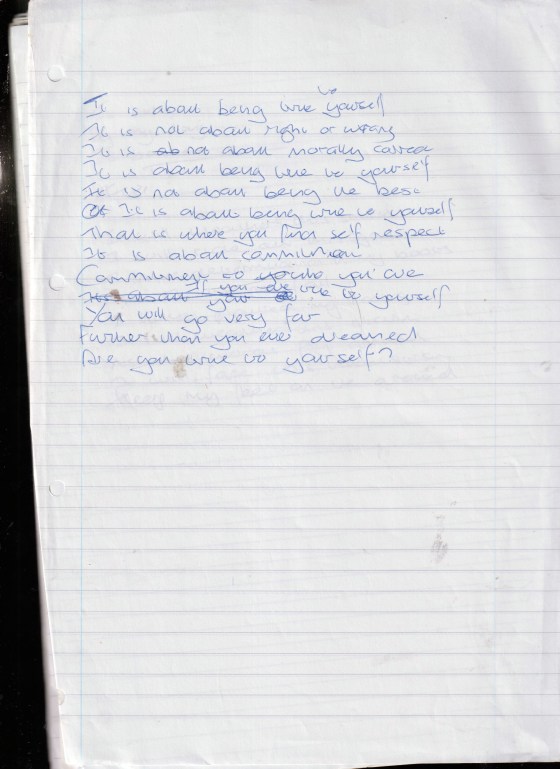 It is about being true to yourself
It is not about right or wrong
It is not about morally correct
It is about being true to yourself
It is not about being the best
It is about being true to yourself
That is where you find self respect
It is about commitment
Commitment to who you are
If you are true to yourself
You will go very far
Further than you ever dreamed
Are you true to yourself?